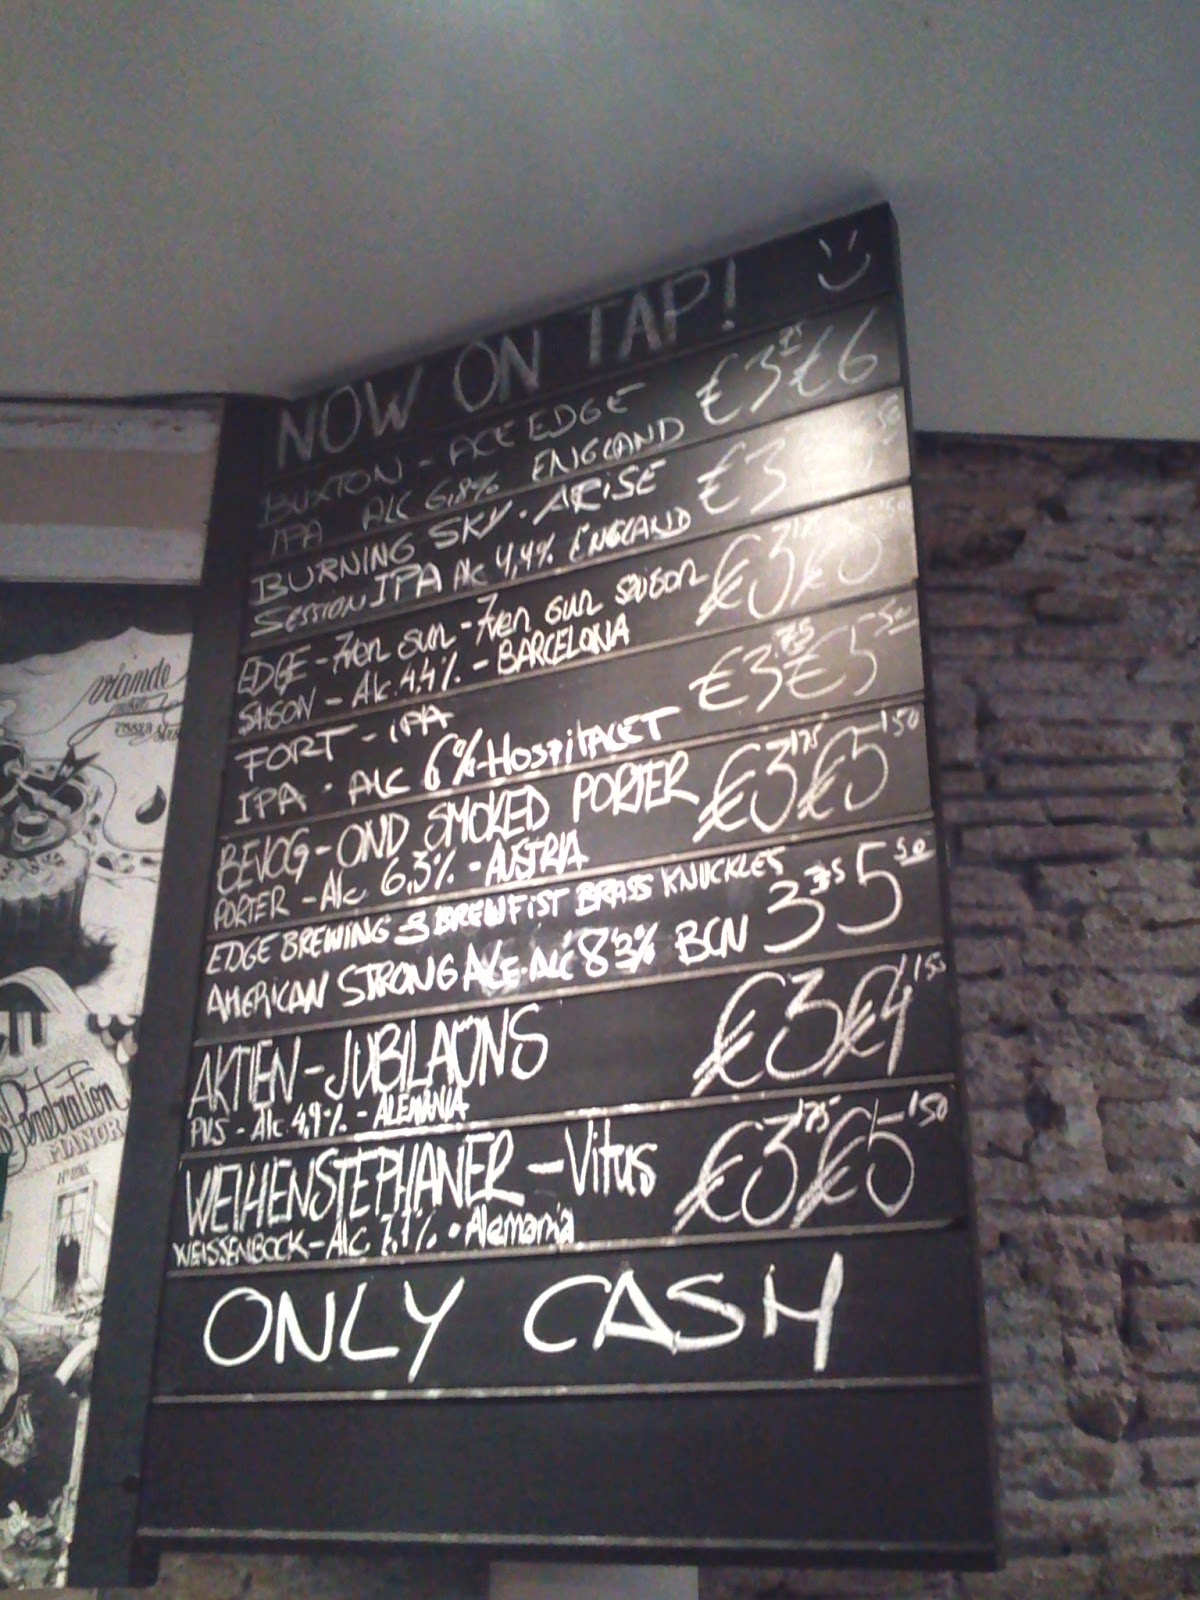 NOW ON TAP!
BUXTON - ACE EDGE €3'75 €6
IPA ALC 6,8% ENGLAND
BURNING SKY · ARISE €3 50
SESSION IPA Alc 4,4% ENGLAND
EDGE - 7ven sun - 7ven sun saison €3'75 €5'50
SAISON - Alc. 4.4% - BARCELONA
FORT - IPA €3'75 €5'50
IPA · ALC 6% - HOSPITALET
BEVOG - OND SMOKED PORTER €3'75 €5'50
PORTER - Alc 6.3% - AUSTRIA
EDGE BREWING & BREWFIST BRASS KNUCKLES 3'75 5'50
AMERICAN STRONG ALE · ALC 8'3% BCN
AKTIEN - JUBILAONS €3 €4'50
PVS - Alc. 4,9% - ALEMANIA
WEIHENSTEPHANER - Vitus €3'75 €5'50
WEISSENBOCK - Alc 7,7% · Alemania
ONLY CASH
viande
Penetration
MANOR